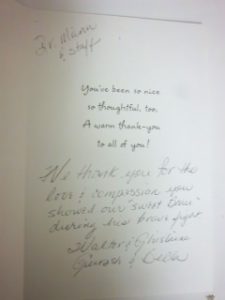 Dr. Mann
& staff
You've been so nice
so thoughtful, too,
A warm thank-you
to all of you!
We thank you for the
love & compassion you
showed our "sweet
during his brave fight
Walter & Ghislaine